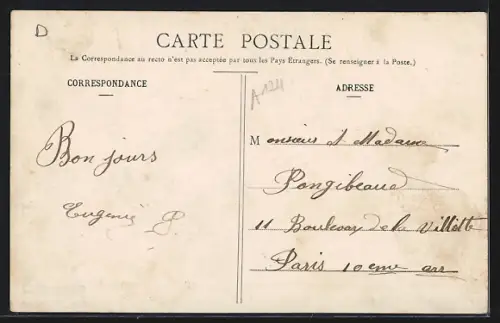 D
CARTE POSTALE
La Correspondance au recto n'est pas acceptée par tous les Pays Etrangers. (Se renseigner à la Poste.)
CORRESPONDANCE
ADRESSE
A124
Bon jours
Eugenie P.
Monsieur et Madame
Pongibeaud
11 Boulevar de la Villette
Paris 10eme arr